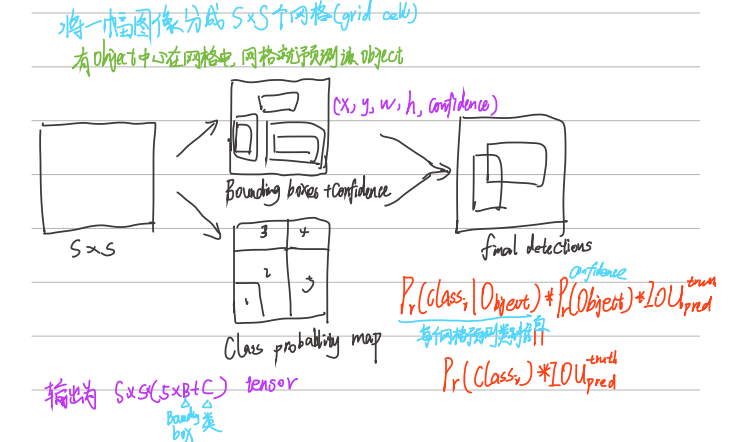 将一幅图像分成 S×S个网格(grid cell)
有Object中心在网格中,网格就预测该Object
(x, y, w, h, confidence)
Bounding boxes + Confidence
S×S
3 4
2
1 5
Class probability map
final detections
confidence
Pr(Classi|Object)*Pr(Object)*IOU truth pred
每个网格预测类别信息
=
Pr(Classi)*IOU truth pred
输出为 S×S(5×B+C) tensor
Bounding box 类